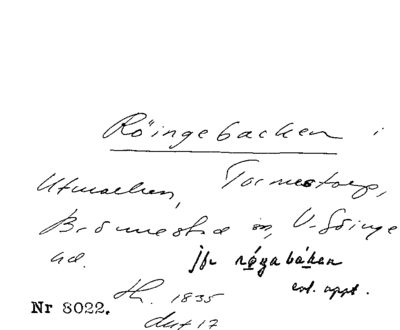 Röingebacken i
Utmarken, Tormestorp,
Brönnestad sn, V. Göinge
hd. jfr røyabákan
enl. uppt.
Nr 8022. Hl. 1835
akt 17